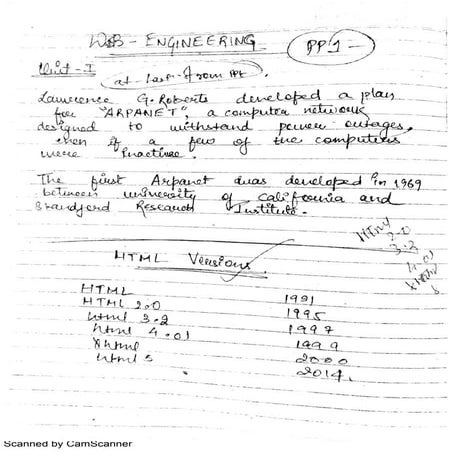 WEB - ENGINEERING
PP.1 -
Unit - I
at last - from PPt.
Lawrence G. Roberts developed a plan
for "ARPANET", a computer network
designed to withstand power outages,
even if a few of the computers
were Inactive.
The first Arpanet was developed in 1969
between university of california and
Standford Research Institute.
HTML
2.0
3.2
4.01
HTML Versions
HTML 1991
HTML 2.0 1995
html 3.2 1997
html 4.01 1999
Xhtml 2000
html 5 2014.
Scanned by CamScanner